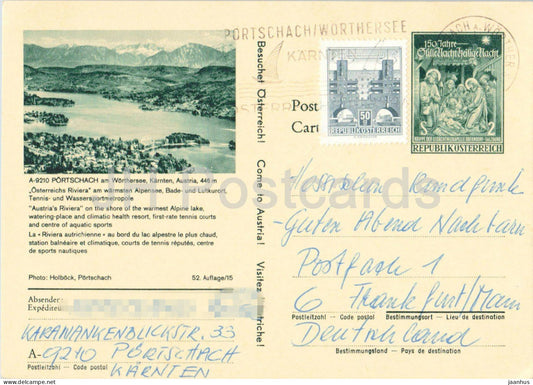 PÖRTSCHACH/WÖRTHERSEE
KÄRNTEN
150 Jahre
Stille Nacht Heilige Nacht
2
REPUBLIK ÖSTERREICH
50
REPUBLIK ÖSTERREICH
Post
Cart
Besuchet Österreich! Come to Austria! Visitez
A-9210 PÖRTSCHACH am Wörthersee, Kärnten, Austria, 446 m
„Österreichs Riviera" am wärmsten Alpensee, Bade- und Luftkurort,
Tennis- und Wassersportmetropole
"Austria's Riviera" on the shore of the warmest Alpine lake,
watering-place and climatic health resort, first-rate tennis courts
and centre of aquatic sports
La « Riviera autrichienne » au bord du lac alpestre le plus chaud,
station balnéaire et climatique, courts de tennis réputés, centre
de sports nautiques
Photo: Holböck, Pörtschach 52. Auflage/15
Absender:
Expéditeur
KARAWANKENBLICKSTR. 33
A-9210 PÖRTSCHACH
Postleitzahl - Code postal
KÄRNTEN
Hessischer Rundfunk
- Guten Abend Nachbarn
Postfach 1
6 Frankfurt/Main
Postleitzahl - Code postal Bestimmungsort - Lieu de destination
Deutschland
Bestimmungsland - Pays de destination
postcards
www.jauhown.com